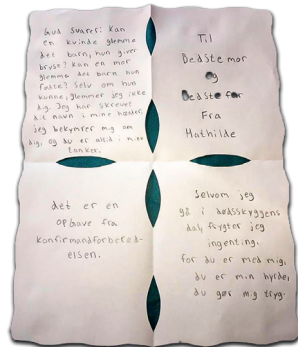 Gud svarer: kan
en kvinde glemme
det barn, hun giver
bryst? kan en mor
glemme det barn hun
fødte? Selv om hun
kunne, glemmer jeg ikke
dig. Jeg har skrevet
dit navn i mine hænder,
jeg bekymrer mig om
dig, og du er altid i mine
tanker.
Til
Bedstemor
og
Bedstefar
Fra
Mathilde
det er en
opgave fra
konfirmandforbered-
elsen.
Selvom jeg
gå i dødsskyggens
dal, frygter jeg
ingenting.
for du er med mig,
du er min hyrde,
du gør mig tryg.